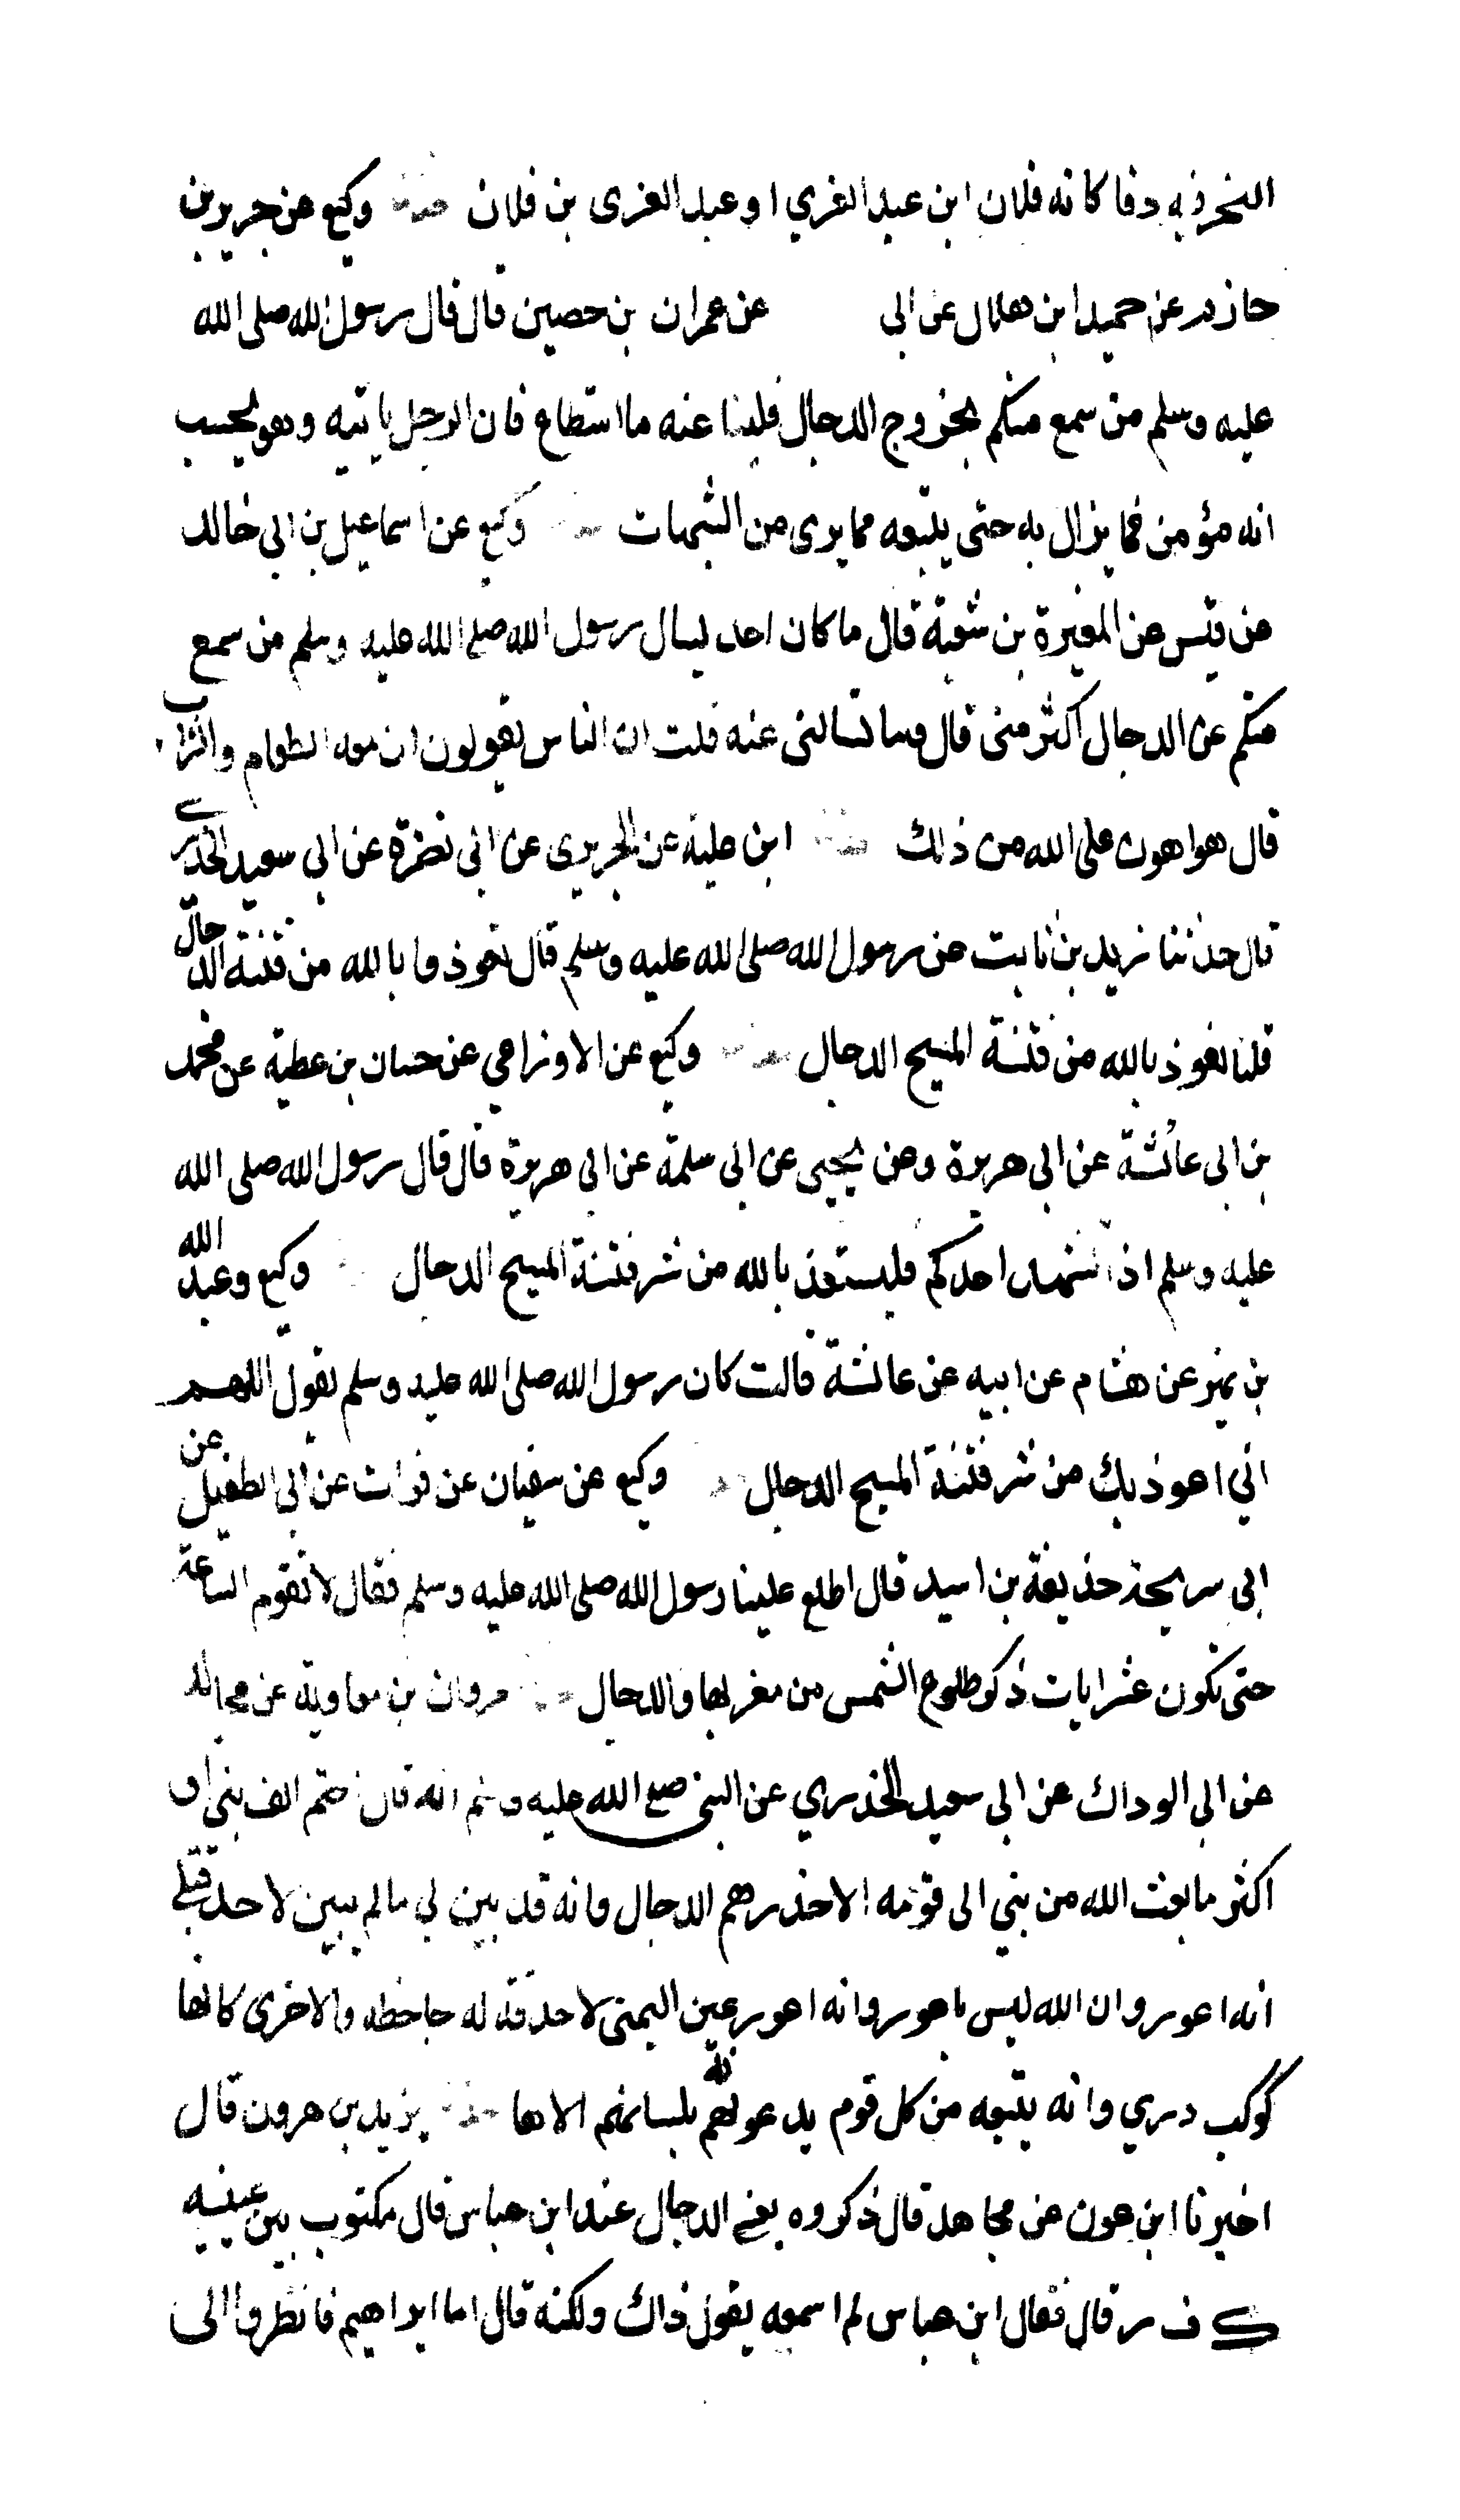 النحر فيه دفا كانه فلان ابن عبد العزي او عبد العزى بن فلان حدثنا وكيع عن جرير بن
حازم عن حميد ابن هلال عن ابى عن عمران بن حصين قال قال رسول الله صلى الله
عليه وسلم من سمع منكم بخروج الدجال فلينا عنه ما استطاع فان الرجل ياتيه وهو يحسب
انه مؤمن فما يزال به حتى يتبعه مما يرى من الشبهات وكيع عن اسماعيل بن ابي خالد
عن قيس عن المغيرة بن شعبة قال ما كان احد يسال رسول الله صلى الله عليه وسلم من سمع
منكم عن الدجال اكثر منى قال وما تسالنى عنه قلت ان الناس يقولون ان معه الطعام والشراب
قال هو اهون على الله من ذلك حدثنا ابن علية عن الجريرى عن ابى نضرة عن ابى سعيد الخدري
قال حدثنا زيد بن ثابت عن رسول الله صلى الله عليه وسلم قال تعوذوا بالله من فتنة الدجال
قلنا نعوذ بالله من فتنة المسيح الدجال حدثنا وكيع عن الاوزاعي عن حسان بن عطية عن محمد
بن ابى عائشة عن ابى هريرة وعن يحيى عن ابى سلمة عن ابى هريرة قال قال رسول الله صلى الله
عليه وسلم اذا تشهد احدكم فليستعذ بالله من شر فتنة المسيح الدجال وكيع وعبد الله
بن نمير عن هشام عن ابيه عن عائشة قالت كان رسول الله صلى الله عليه وسلم يقول اللهم
اني اعوذ بك من شر فتنة المسيح الدجال وكيع عن سفيان عن فرات عن ابى الطفيل عن
ابى سريحة حذيفة بن اسيد قال اطلع علينا رسول الله صلى الله عليه وسلم فقال لا تقوم الساعة
حتى تكون عشر ايات ذكر طلوع الشمس من مغربها والدجال مروان بن معاوية عن مجالد
عن ابى الوداك عن ابى سعيد الخدري عن النبى صلع الله عليه وسلم انه قال ختم الف نبي او
اكثر ما بعث الله من نبي الى قومه الا حذرهم الدجال وانه قد بين لي ما لم يبين لاحد قبلي
انه اعور وان الله ليس باعور وانه اعور عين اليمنى لا حدقة له جاحظه والاخرى كانها
كوكب دري وانه يتبعه من كل قوم يدعونهم بلسانهم الاها حدثنا يزيد بن هرون قال
اخبرنا ابن عون عن مجاهد قال ذكروه يعني الدجال عند ابن عباس قال مكتوب بين عينيه
ك ف ر قال فقال ابن عباس لم اسمعه يقول ذاك ولكنه قال اما ابراهيم فانظروا الى